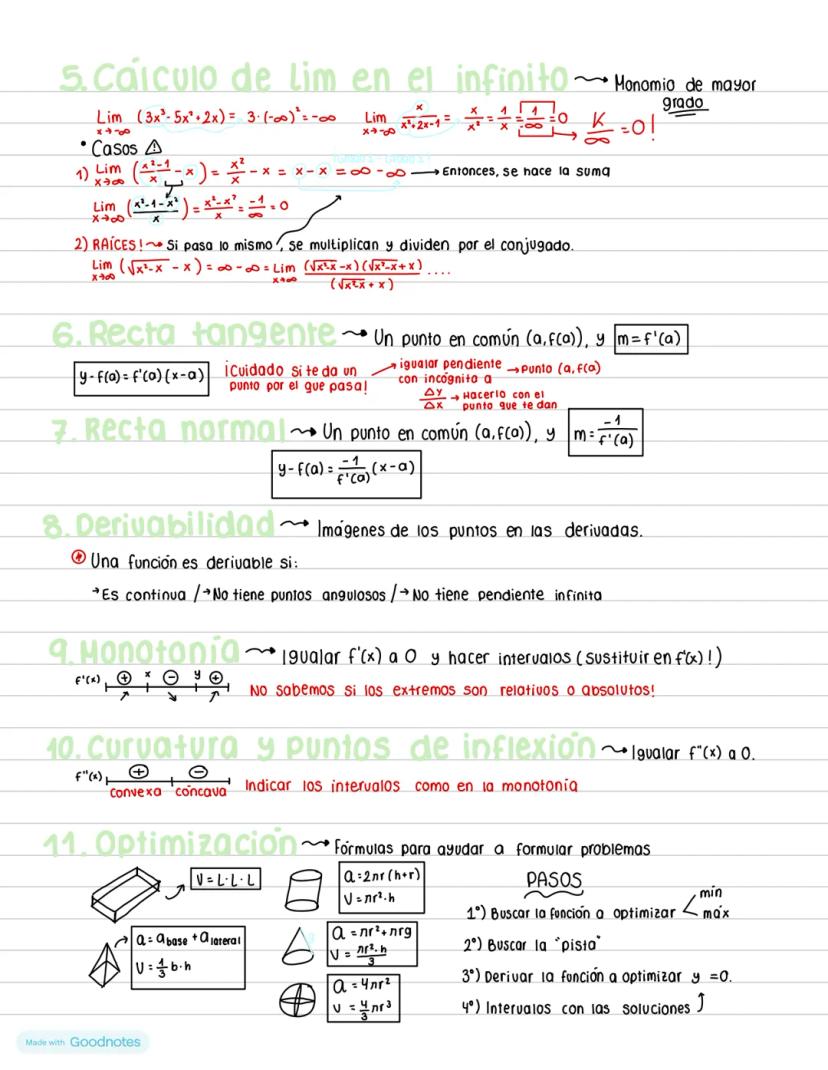 5. Cálculo de lim en el infinito ⟿ Monomio de mayor grado
Lim x→-∞ (3x³-5x²+2x) = 3·(-∞)² = -∞ Lim x→-∞ x/(x²+2x-1) = x/x² = 1/x = 1/-∞ = 0 K/∞ = 0!
• Casos ⚠
1) Lim x→∞ ((x²-1)/x - x) = x²/x - x = x - x = ∞ - ∞ → Entonces, se hace la suma
Lim x→∞ ((x²-1-x²)/x) = (x²-x²)/x = -1/∞ = 0
2) RAÍCES! ⟿ Si pasa lo mismo, se multiplican y dividen por el conjugado.
Lim x→∞ (√x²-x - x) = ∞ - ∞ = Lim x→∞ (√x²-x - x)(√x²-x + x)/(√x²-x + x) ....
6. Recta tangente ⟿ Un punto en común (a, f(a)), y m=f'(a)
y-f(a) = f'(a)(x-a) ¡Cuidado si te da un punto por el que pasa! → igualar pendiente con incógnita a → Punto (a, f(a)
Δy/Δx → Hacerlo con el punto que te dan
7. Recta normal ⟿ Un punto en común (a, f(a)), y m = -1/f'(a)
y-f(a) = -1/f'(a) (x-a)
8. Derivabilidad ⟿ Imágenes de los puntos en las derivadas.
Una función es derivable si:
→Es continua /→No tiene puntos angulosos /→ No tiene pendiente infinita
9. Monotonía ⟿ Igualar f'(x) a 0 y hacer intervalos (sustituir en f'(x)!)
f'(x) ⊕ x ⊖ y ⊕ No sabemos si los extremos son relativos o absolutos!
10. Curvatura y puntos de inflexión ⟿ Igualar f''(x) a 0.
f''(x) ⊕ ⊖
convexa cóncava Indicar los intervalos como en la monotonía
11. Optimización ⟿ Fórmulas para ayudar a formular problemas
V = L·L·L
a = 2πr(h+r)
V = πr²·h
a = a base + a lateral
V = 1/3 b·h
a = πr²+πrg
V = πr²·h/3
a = 4πr²
V = 4/3 πr³
PASOS
1º) Buscar la función a optimizar < mín máx
2º) Buscar la "pista"
3º) Derivar la función a optimizar y =0.
4º) Intervalos con las soluciones ⤴
Made with Goodnotes